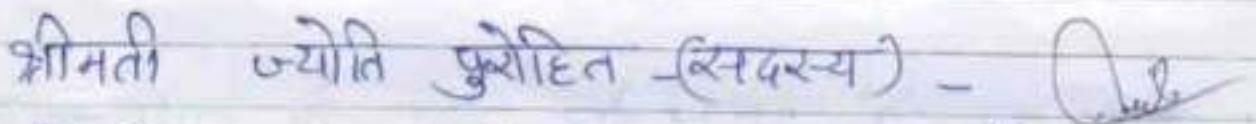 श्रीमती ज्योति पुरोहित -(सदस्य) -